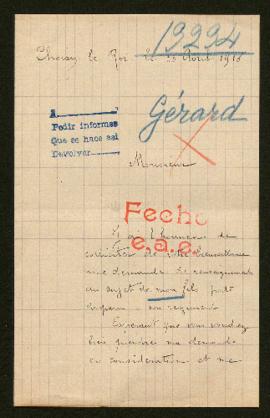 19294
Choisy le Roi le 25 Avril 1916
Gérard
A
Pedir informes
Que se hace así
Devolver
Monsieur
Fecho
e.a.e.
J'ai l'honneur de
solliciter de votre bienveillance
une demande de renseignements
au sujet de mon fils porté
disparu
son régiment
Espérant que vous voudrez
bien prendre ma demande
en considération et me